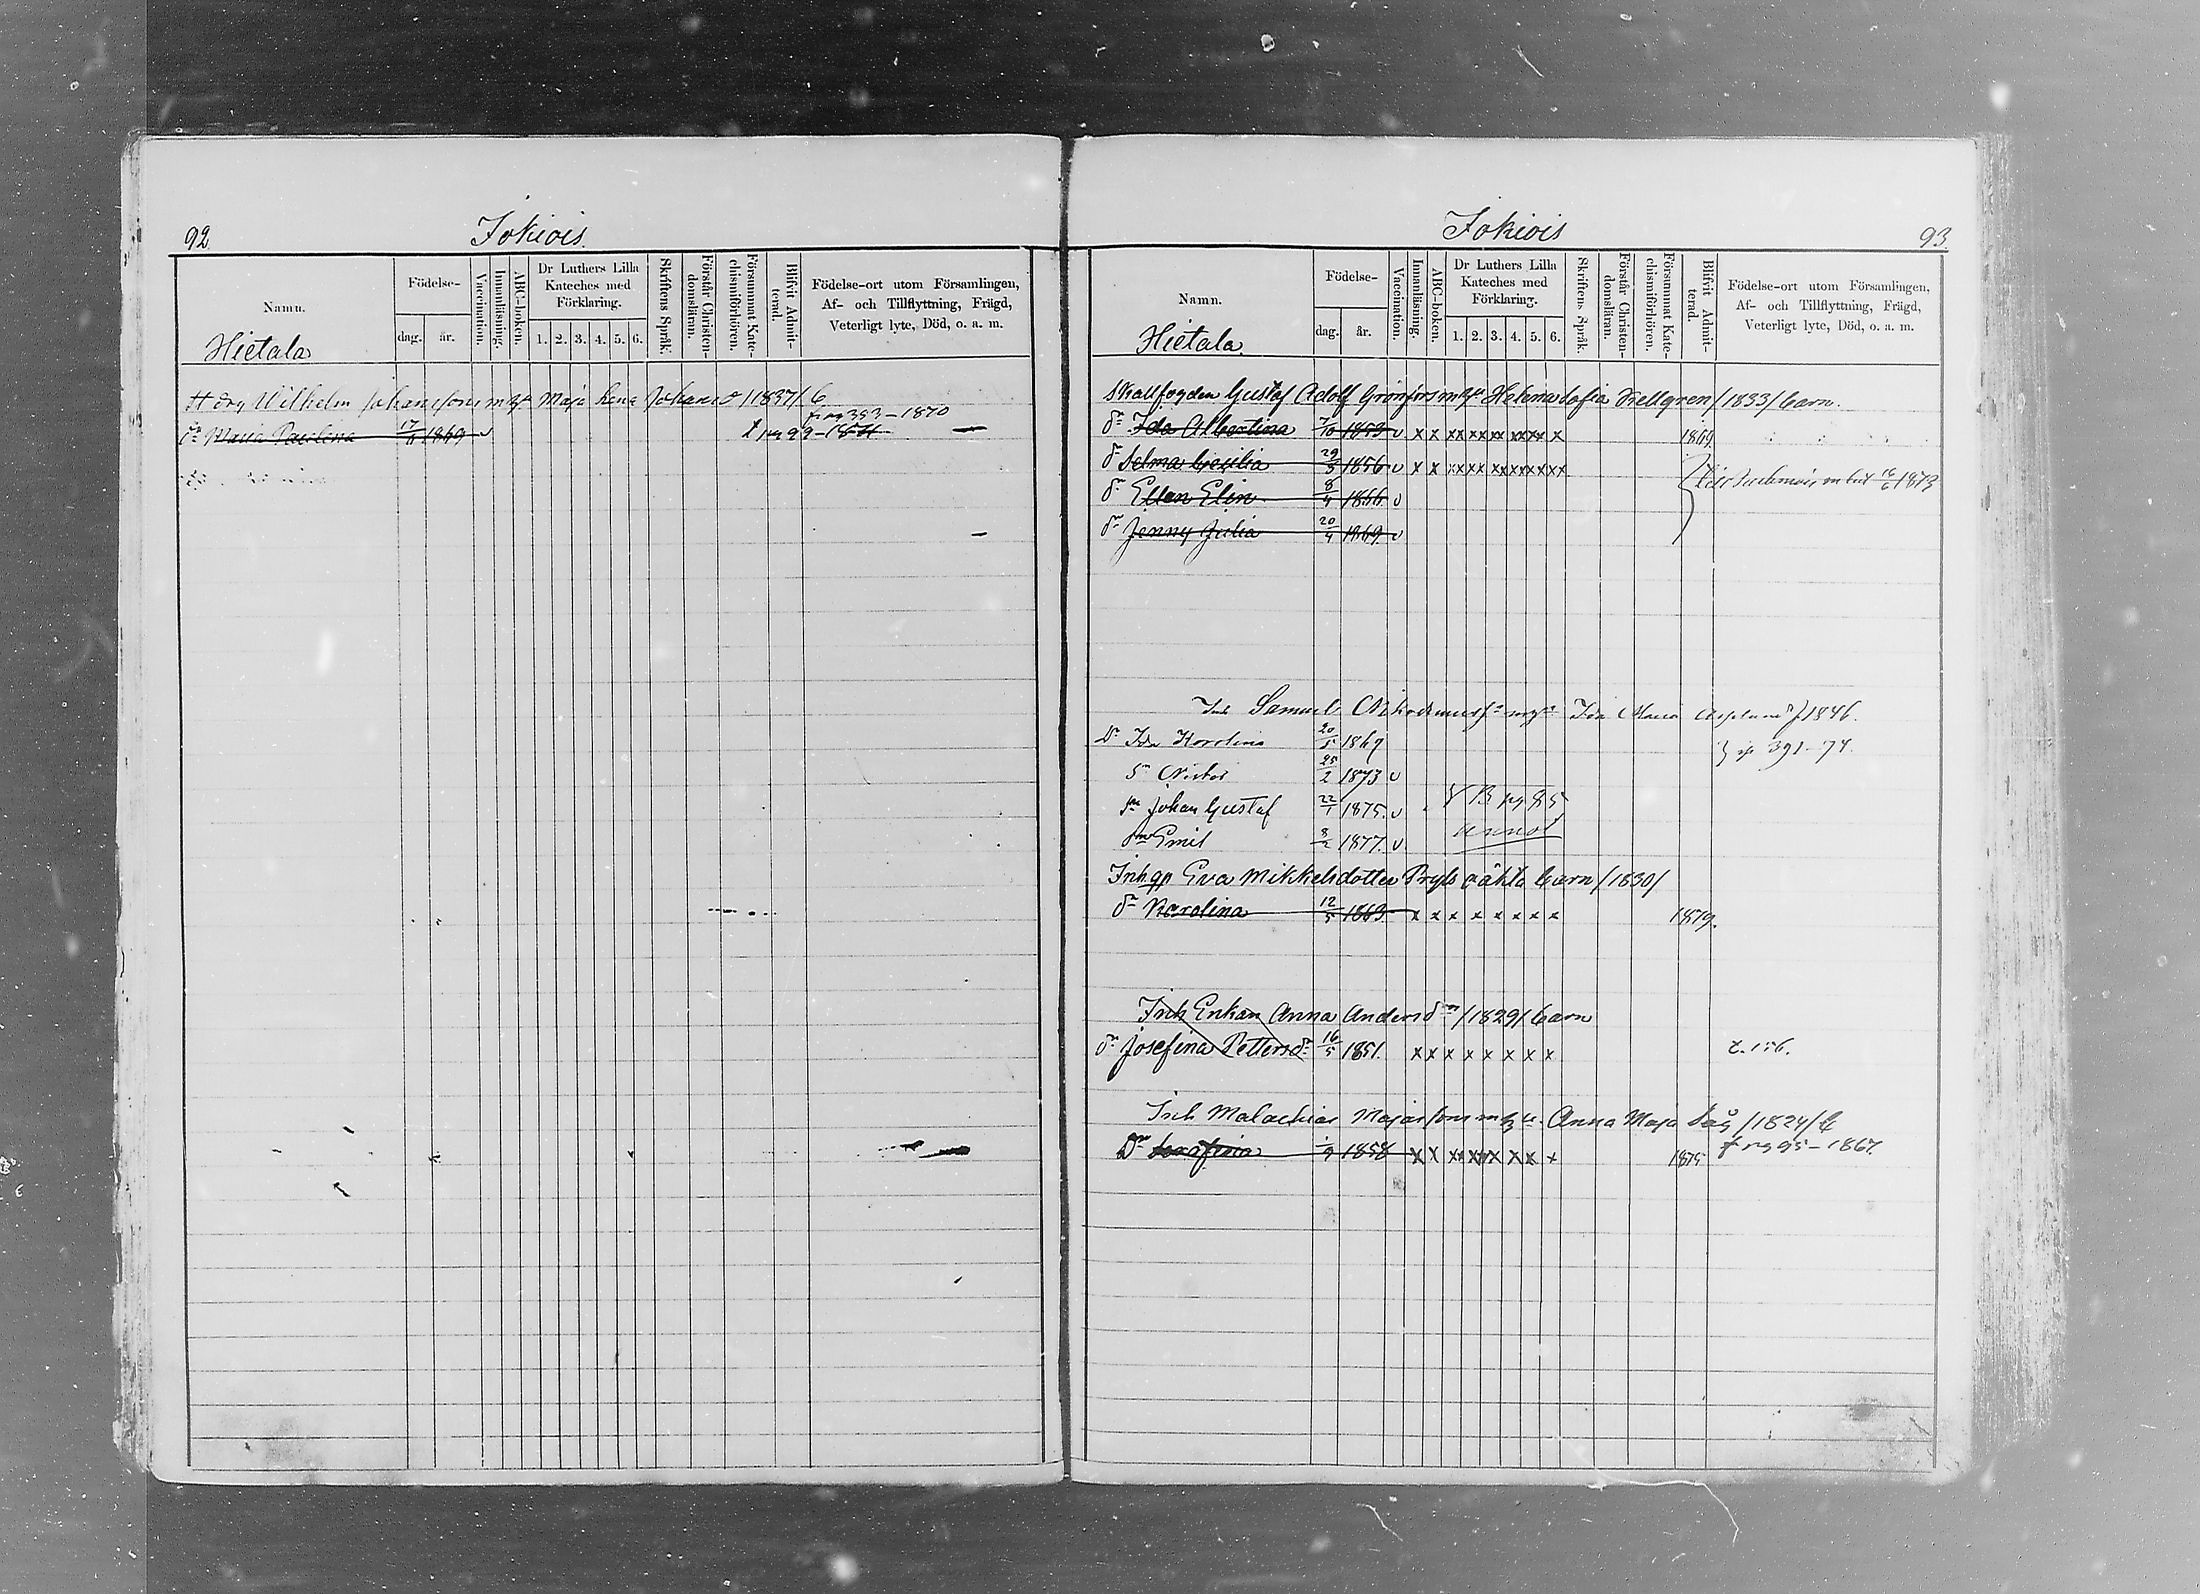 92
Jokiois
Namn.
Födelse-
dag.
år.
Vaccination.
Innanläsning.
ABC-boken.
Dr Luthers Lilla Kateches med Förklaring.
1. 2. 3. 4. 5. 6.
Skriftens Språk.
Förstår Christendomsläran.
Försummat Katechismiförhören.
Blifvit Admitterad.
Födelse-ort utom Församlingen, Af- och Tillflyttning, Frägd, Veterligt lyte, Död, o. a. m.
Hietala
Wilhelm Johansson Maja Lena Johansd /1837/ b
fr pg 393-1870
dr Maria Paulina 17/6 1869 v t pg 99-1871
Jokiois
93.
Namn.
Födelse-
dag.
år.
Vaccination.
Innanläsning.
ABC-boken.
Dr Luthers Lilla Kateches med Förklaring.
1. 2. 3. 4. 5. 6.
Skriftens Språk.
Förstår Christendomsläran.
Försummat Katechismiförhören.
Blifvit Admitterad.
Födelse-ort utom Församlingen, Af- och Tillflyttning, Frägd, Veterligt lyte, Död, o. a. m.
Hietala.
Gustaf Adolf Grönfors m h Helena Sofia Kellgren /1833/ barn.
dr Ida Albertina 7/10 1853 v x x xx xx xx xx xx x 1869
dr Selma Cecilia 29/3 1856 v x x xx xx xx xx xx xx 16/6 1873
dr Ellen Elin 8/4 1866 v
dr Jenny Julia 20/4 1869. v
Inh Samuel Nikodemus Ida Maria /1846.
Dr Ida Karolina 20/5 1869 391-74.
25/2 1873 v
sn Johan Gustaf 22/1 1875. v B pg 85
sn Emil 8/2 1877. v annot
Inh. qp Eva Mikkelsdotter Pryls oäkta barn /1830/
dr Karolina 12/5 1863 x x x x x x x x 1879.
Inh Enkan Anna Andersdr /1829/ barn
dr Josefina Pettersdr 16/5 1851. x x x x x x x x t. 156.
Inh Malachias Majasson m h u. Anna Maja /1824/ b
Dr Serafina 1/9 1858 x x xx xx x x x 1875 fr pg 95-1867.